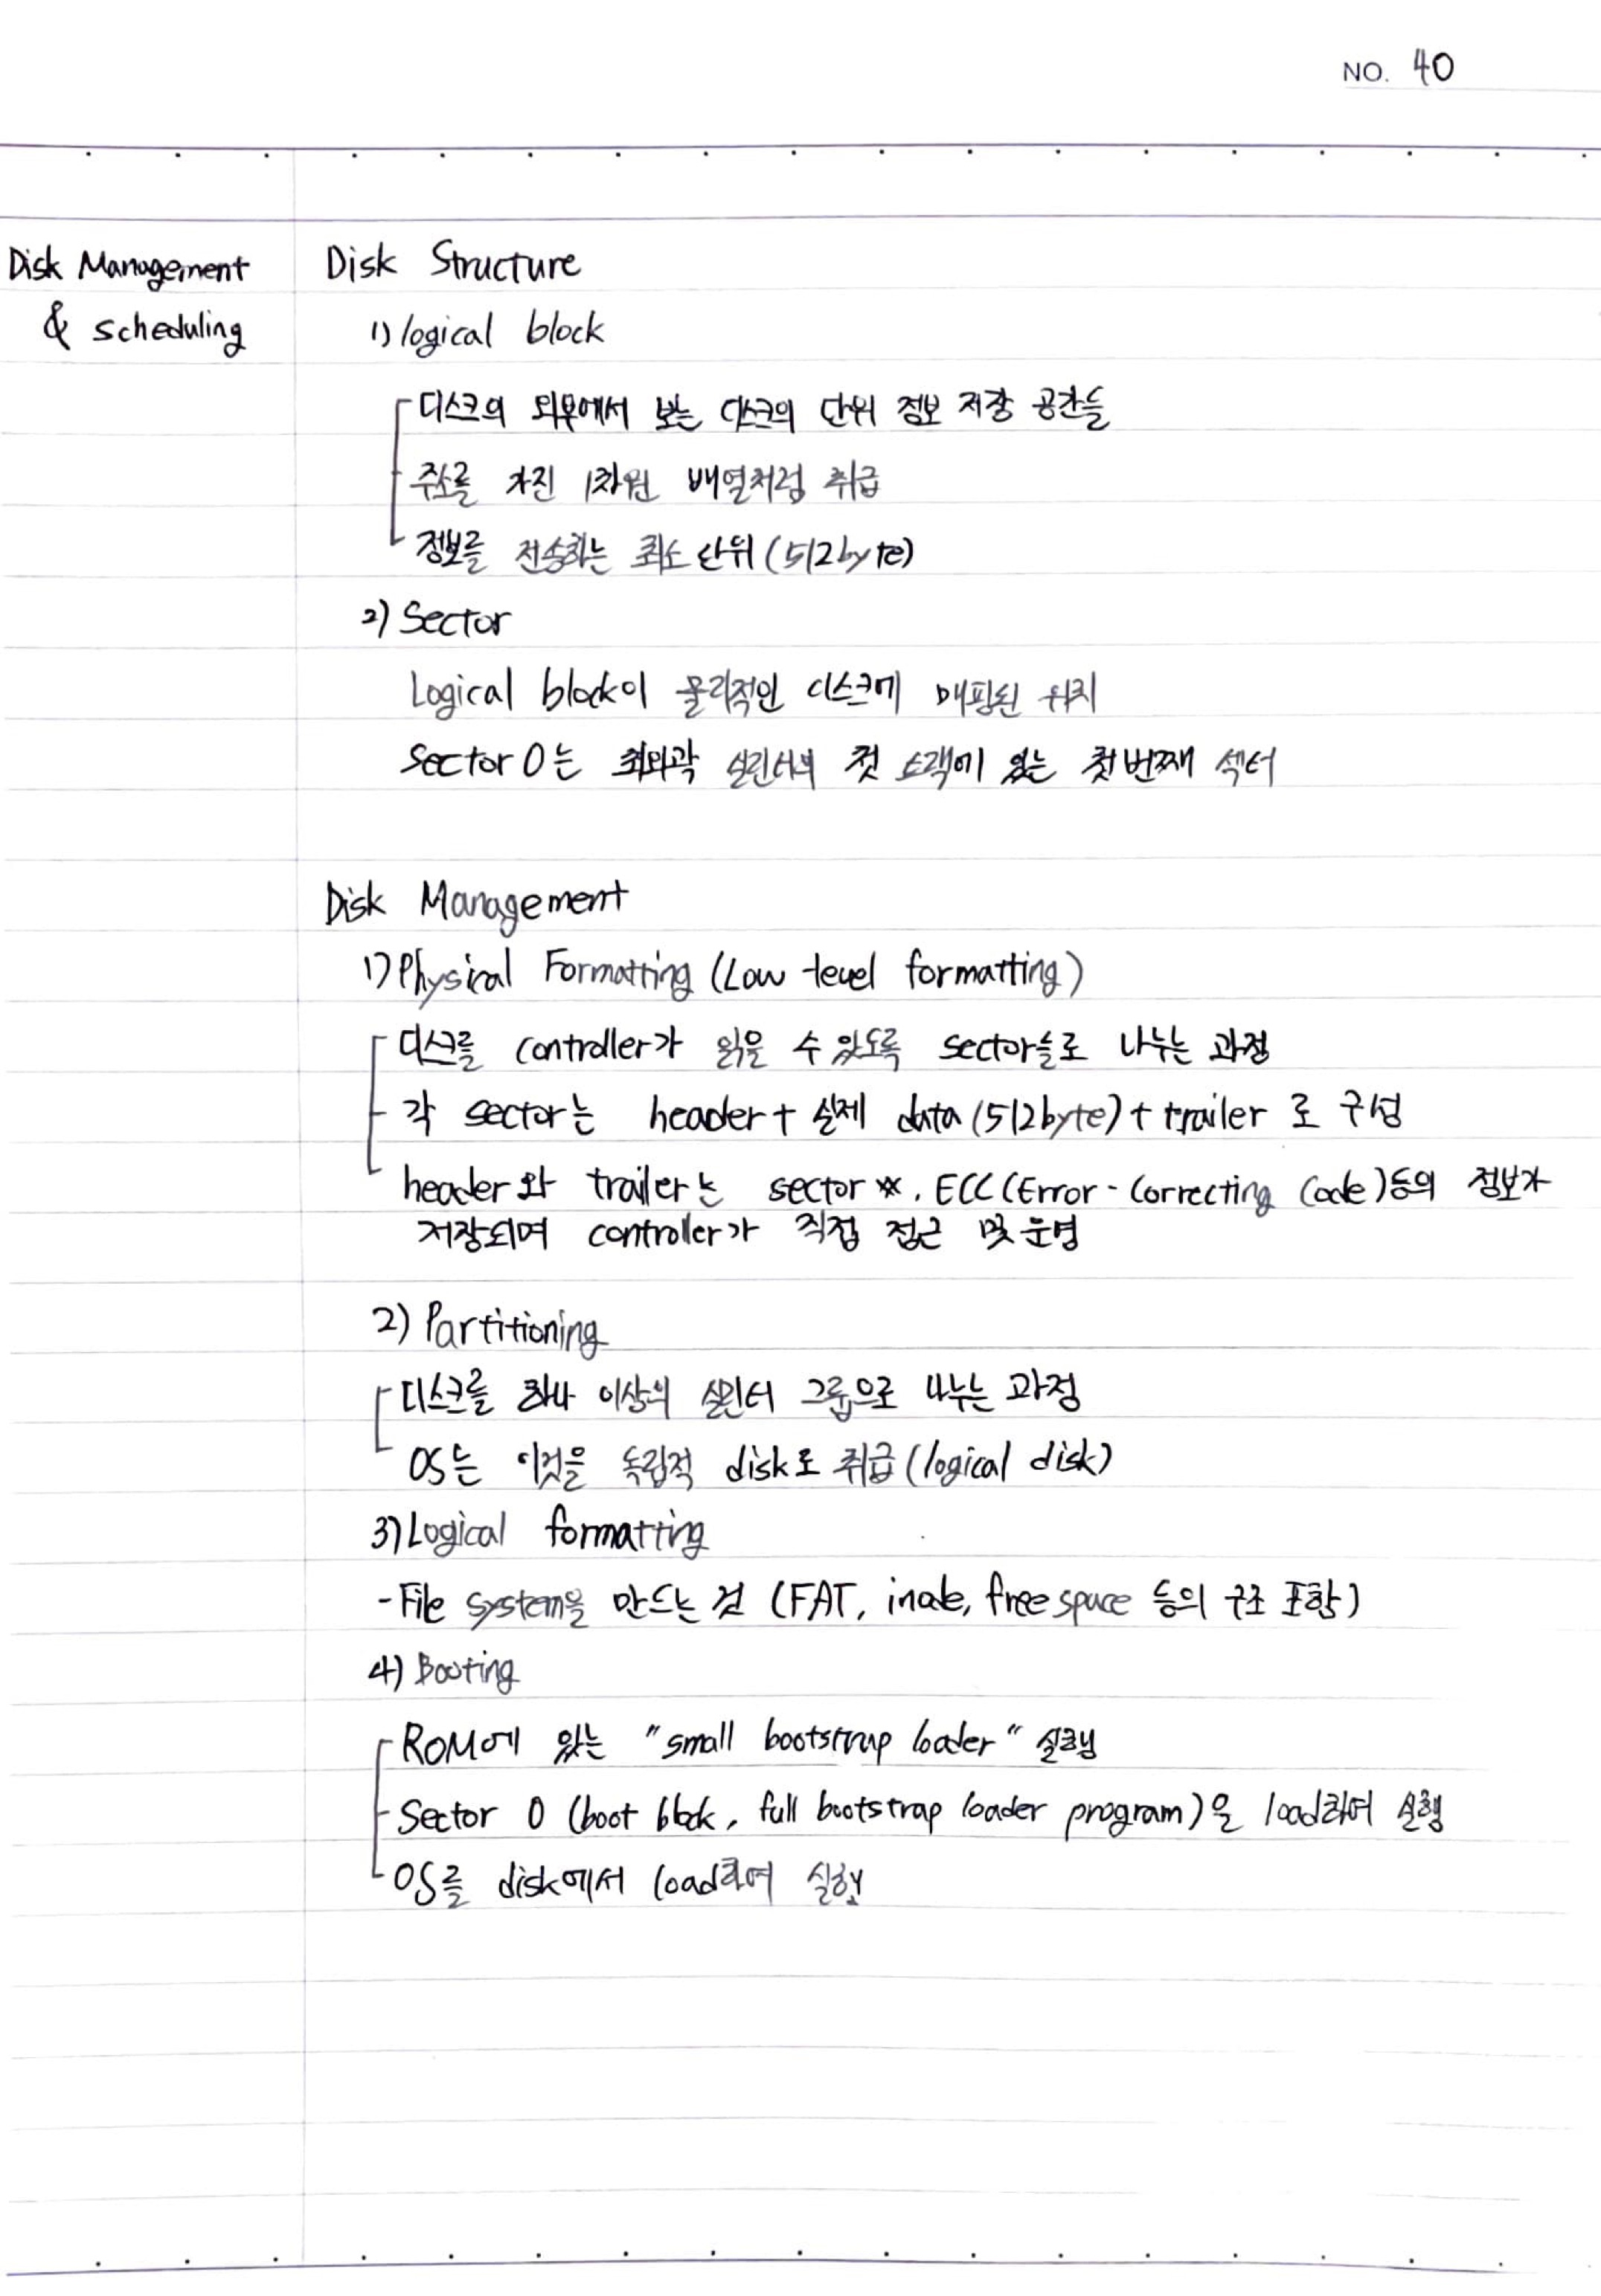 NO. 40
Disk Management
& scheduling
Disk Structure
1) logical block
디스크의 외부에서 보는 디스크의 단위 정보 저장 공간들
주소를 가진 1차원 배열처럼 취급
정보를 전송하는 최소 단위 (512byte)
2) Sector
Logical block이 물리적인 디스크에 매핑된 위치
Sector 0는 최외곽 실린더의 첫 트랙에 있는 첫 번째 섹터
Disk Management
1) Physical Formatting (Low-level formatting)
디스크를 controller가 읽을 수 있도록 sector들로 나누는 과정
각 sector는 header + 실제 data (512byte) + trailer로 구성
header와 trailer는 sector #, ECC (Error-Correcting Code) 등의 정보가
저장되며 controller가 직접 접근 및 운영
2) Partitioning
디스크를 하나 이상의 실린더 그룹으로 나누는 과정
OS는 이것을 독립적 disk로 취급 (logical disk)
3) Logical formatting
- File system을 만드는 것 (FAT, inode, free space 등의 구조 포함)
4) Booting
ROM에 있는 "small bootstrap loader" 실행
Sector 0 (boot block, full bootstrap loader program)을 load하여 실행
OS를 disk에서 load하여 실행